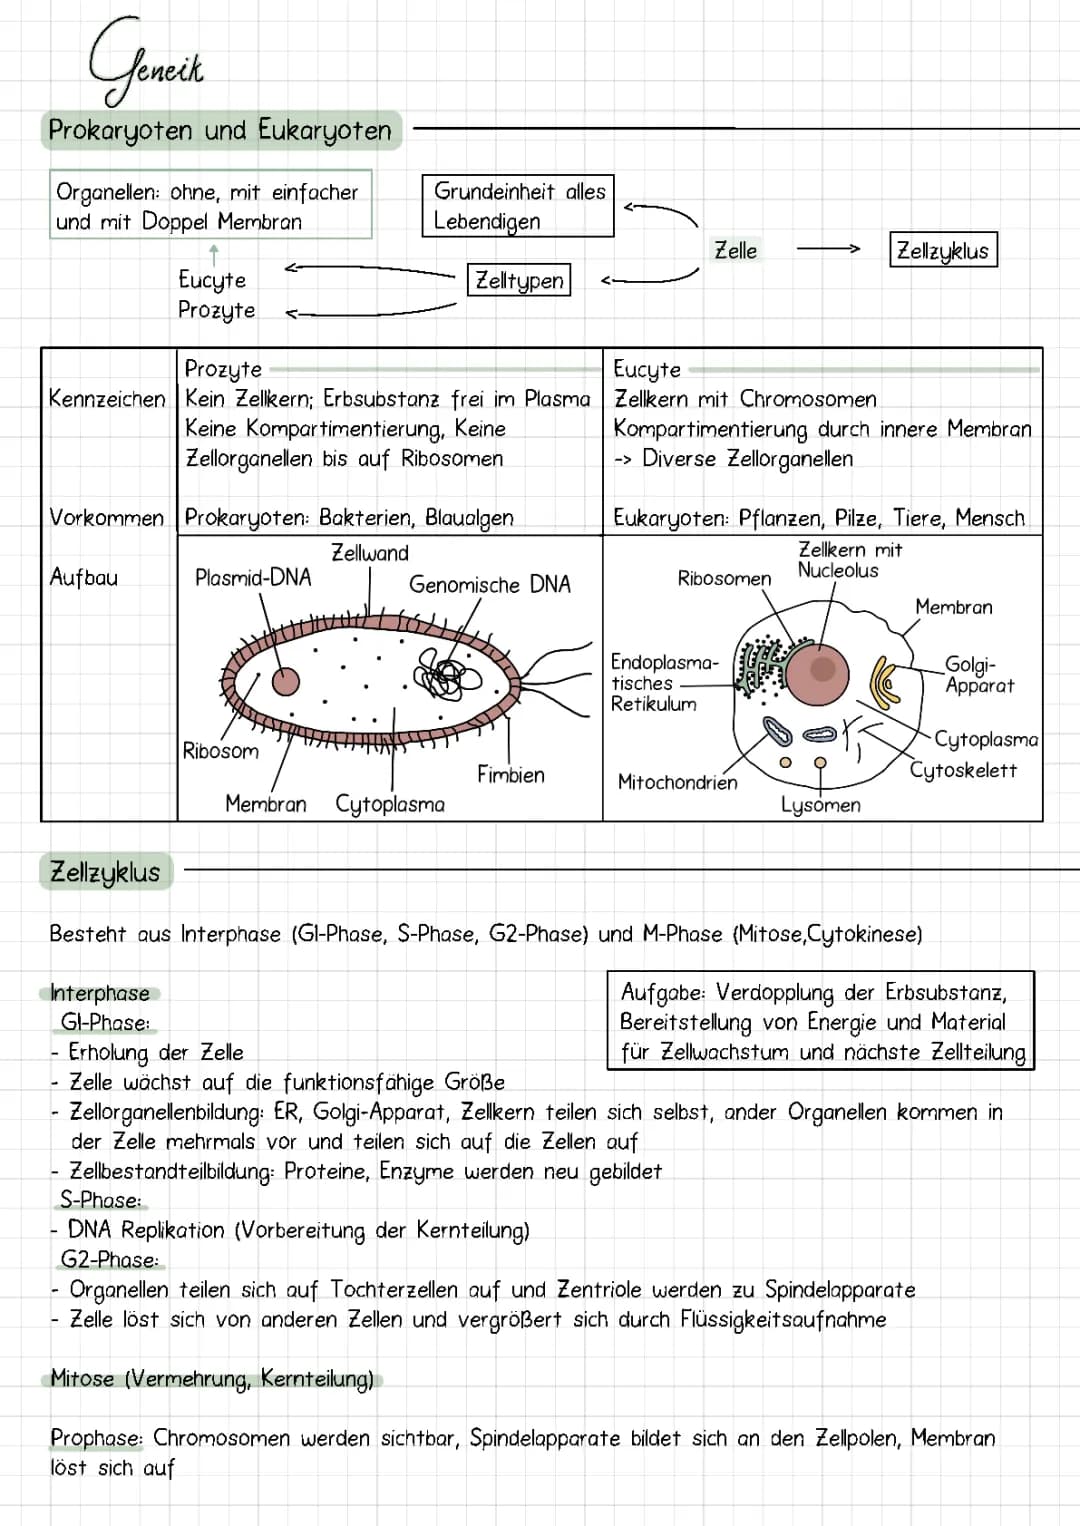 Geneik
Prokaryoten und Eukaryoten
Organellen: ohne, mit einfacher
und mit Doppel Membran
Grundeinheit alles
Lebendigen
Zelle
Zellzyklus
Eucyte
Prozyte
Zelltypen
Prozyte
Eucyte
Kennzeichen
Kein Zellkern; Erbsubstanz frei im Plasma
Keine Kompartimentierung, Keine
Zellorganellen bis auf Ribosomen
Zellkern mit Chromosomen
Kompartimentierung durch innere Membran
-> Diverse Zellorganellen
Vorkommen
Prokaryoten: Bakterien, Blaualgen
Eukaryoten: Pflanzen, Pilze, Tiere, Mensch
Aufbau
Zellwand
Plasmid-DNA
Genomische DNA
Ribosom
Fimbien
Membran
Cytoplasma
Zellkern mit
Nucleolus
Ribosomen
Membran
Endoplasma-
tisches
Retikulum
Golgi-
Apparat
Cytoplasma
Cytoskelett
Mitochondrien
Lysomen
Zellzyklus
Besteht aus Interphase (G1-Phase, S-Phase, G2-Phase) und M-Phase (Mitose,Cytokinese)
Interphase
Aufgabe: Verdopplung der Erbsubstanz,
Bereitstellung von Energie und Material
für Zellwachstum und nächste Zellteilung
G1-Phase:
- Erholung der Zelle
- Zelle wächst auf die funktionsfähige Größe
- Zellorganellenbildung: ER, Golgi-Apparat, Zellkern teilen sich selbst, ander Organellen kommen in
der Zelle mehrmals vor und teilen sich auf die Zellen auf
- Zellbestandteilbildung: Proteine, Enzyme werden neu gebildet
S-Phase:
- DNA Replikation (Vorbereitung der Kernteilung)
G2-Phase:
- Organellen teilen sich auf Tochterzellen auf und Zentriole werden zu Spindelapparate
- Zelle löst sich von anderen Zellen und vergrößert sich durch Flüssigkeitsaufnahme
Mitose (Vermehrung, Kernteilung)
Prophase: Chromosomen werden sichtbar, Spindelapparate bildet sich an den Zellpolen, Membran
löst sich auf